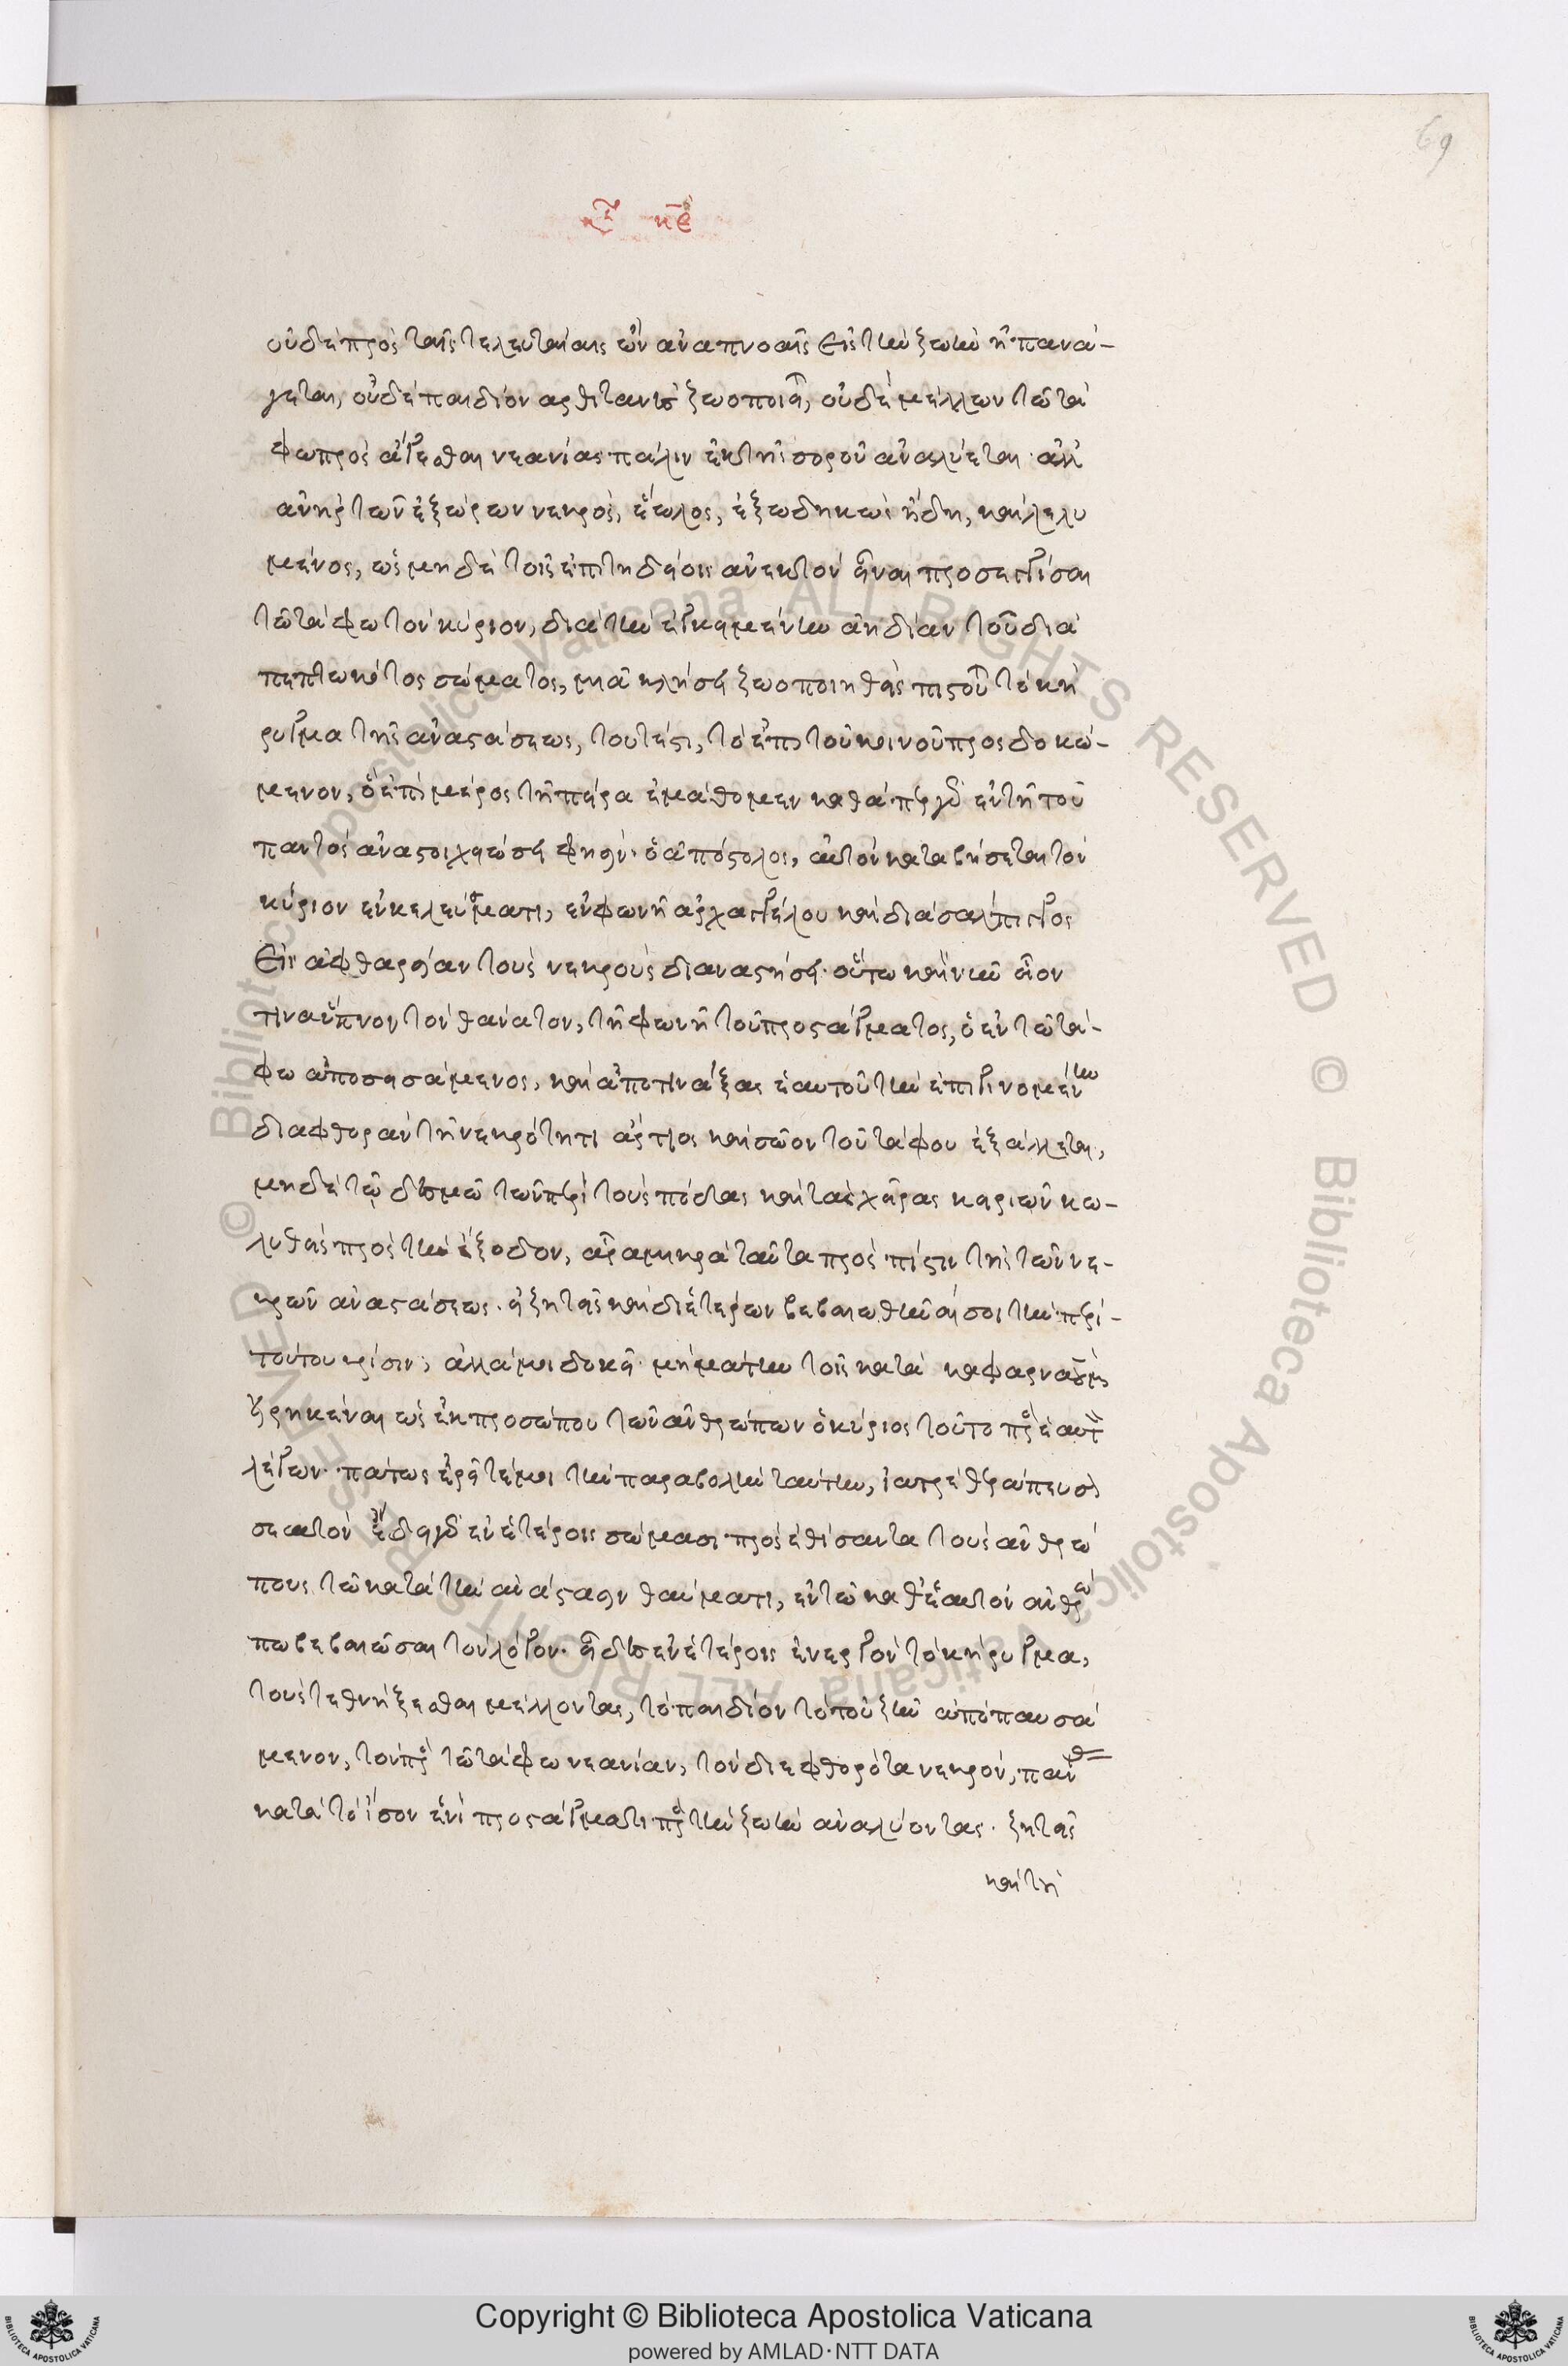 69
κε
οὐδὲ πρὸς ταῖς τελευταίαις ὢν ἀναπνοαῖς εἰς τὴν ζωὴν ἐπανά-
γεται, οὐδὲ παιδίον ἀρτιθανὲς ζωοποιεῖ, οὐδὲ μέλλων τῷ τά
φω προσάγεσθαι νεανίας πάλιν ἐκ τῆς σοροῦ ἀναλύεται. ἀλλ
ἀνὴρ τῶν ἐξώρων νεκρὸς, ἕωλος, ἐξωδηκὼς ἤδη, καὶ λελυ
μένος, ὡς μηδὲ τοῖς ἐπιτηδείοις ἀνεκτὸν εἶναι προσεγγίσαι
τῷ τάφω τὸν κύριον, διὰ τὴν ἐγκειμένην ἀηδίαν τοῦ δια
πεπτωκότος σώματος, μιᾷ κλήσει ζωοποιηθεὶς πιστοῦται τὸ κή
ρυγμα τῆς ἀναστάσεως, τουτέστι, τὸ ἐπὶ τοῦ κοινοῦ προσδοκώ-
μενον, ὃ ἐπὶ μέρος τῇ πείρα ἐμάθομεν καθάπερ γὰρ ἐν τῇ τοῦ
παντὸς ἀναστοιχειώσει φησὶν. ὁ ἀπόστολος, αὐτὸν καταβήσεται τὸν
κύριον ἐν κελεύσματι, ἐν φωνῇ ἀρχαγγέλου καὶ διὰ σάλπιγγος
εἰς ἀφθαρσίαν τοὺς νεκροὺς διαναστήσει. οὕτω καὶ νῦν οἷόν
τινα ὕπνον τὸν θάνατον, τῇ φωνῇ τοῦ προστάγματος, ὁ ἐν τῷ τά-
φω ἀποσεισάμενος, καὶ ἀποτινάξας ἑαυτοῦ τὴν ἐπιγινομένην
διαφθορὰν τῇ νεκρότητι ἄρτιος καὶ σῶος τοῦ τάφου ἐξάλλεται,
μηδὲ τῷ δεσμῷ τῶν περὶ τοὺς πόδας καὶ τὰς χεῖρας κειριῶν κω-
λυθεὶς πρὸς τὴν ἔξοδον, ἆρα μικρὰ ταῦτα πρὸς πίστιν τῆς τῶν νε-
κρῶν ἀναστάσεως. ἢ ζητεῖς καὶ δι' ἑτέρων βεβαιωθῆναί σοι τὴν περὶ
τούτου κρίσιν; ἀλλά μοι δοκεῖ μὴ μάτην τοῖς κατὰ καφαρναοὺμ
εἰρηκέναι ὡς ἐκ προσώπου τῶν ἀνθρώπων ὁ κύριος τοῦτο πρὸς ἑαυτὸν
λέγων. πάντως ἐρεῖτέ μοι τὴν παραβολὴν ταύτην, ἰατρὲ θεράπευσον
σεαυτόν ἔδει γὰρ ἐν ἑτέροις σώμασι προσεθίσαντα τοὺς ἀνθρώ
πους τῷ κατὰ τὴν ἀνάστασιν θαύματι, ἐν τῷ καθ' ἑαυτὸν ἀνθρώ
πω βεβαιῶσαι τὸν λόγον. εἶδες ἐν ἑτέροις ἐνεργὸν τὸ κήρυγμα,
τοὺς τεθνήξεσθαι μέλλοντας, τὸ παιδίον τὸ τοῦ ζῆν ἀποπαυσά
μενον, τὸν πρὸς τῷ τάφω νεανίαν, τὸν διεφθορότα νεκρόν, πάντας
κατὰ τὸ ἴσον ἑνὶ προστάγματι πρὸς τὴν ζωὴν ἀναλύοντας. ζητεῖς
καὶ τοὺς